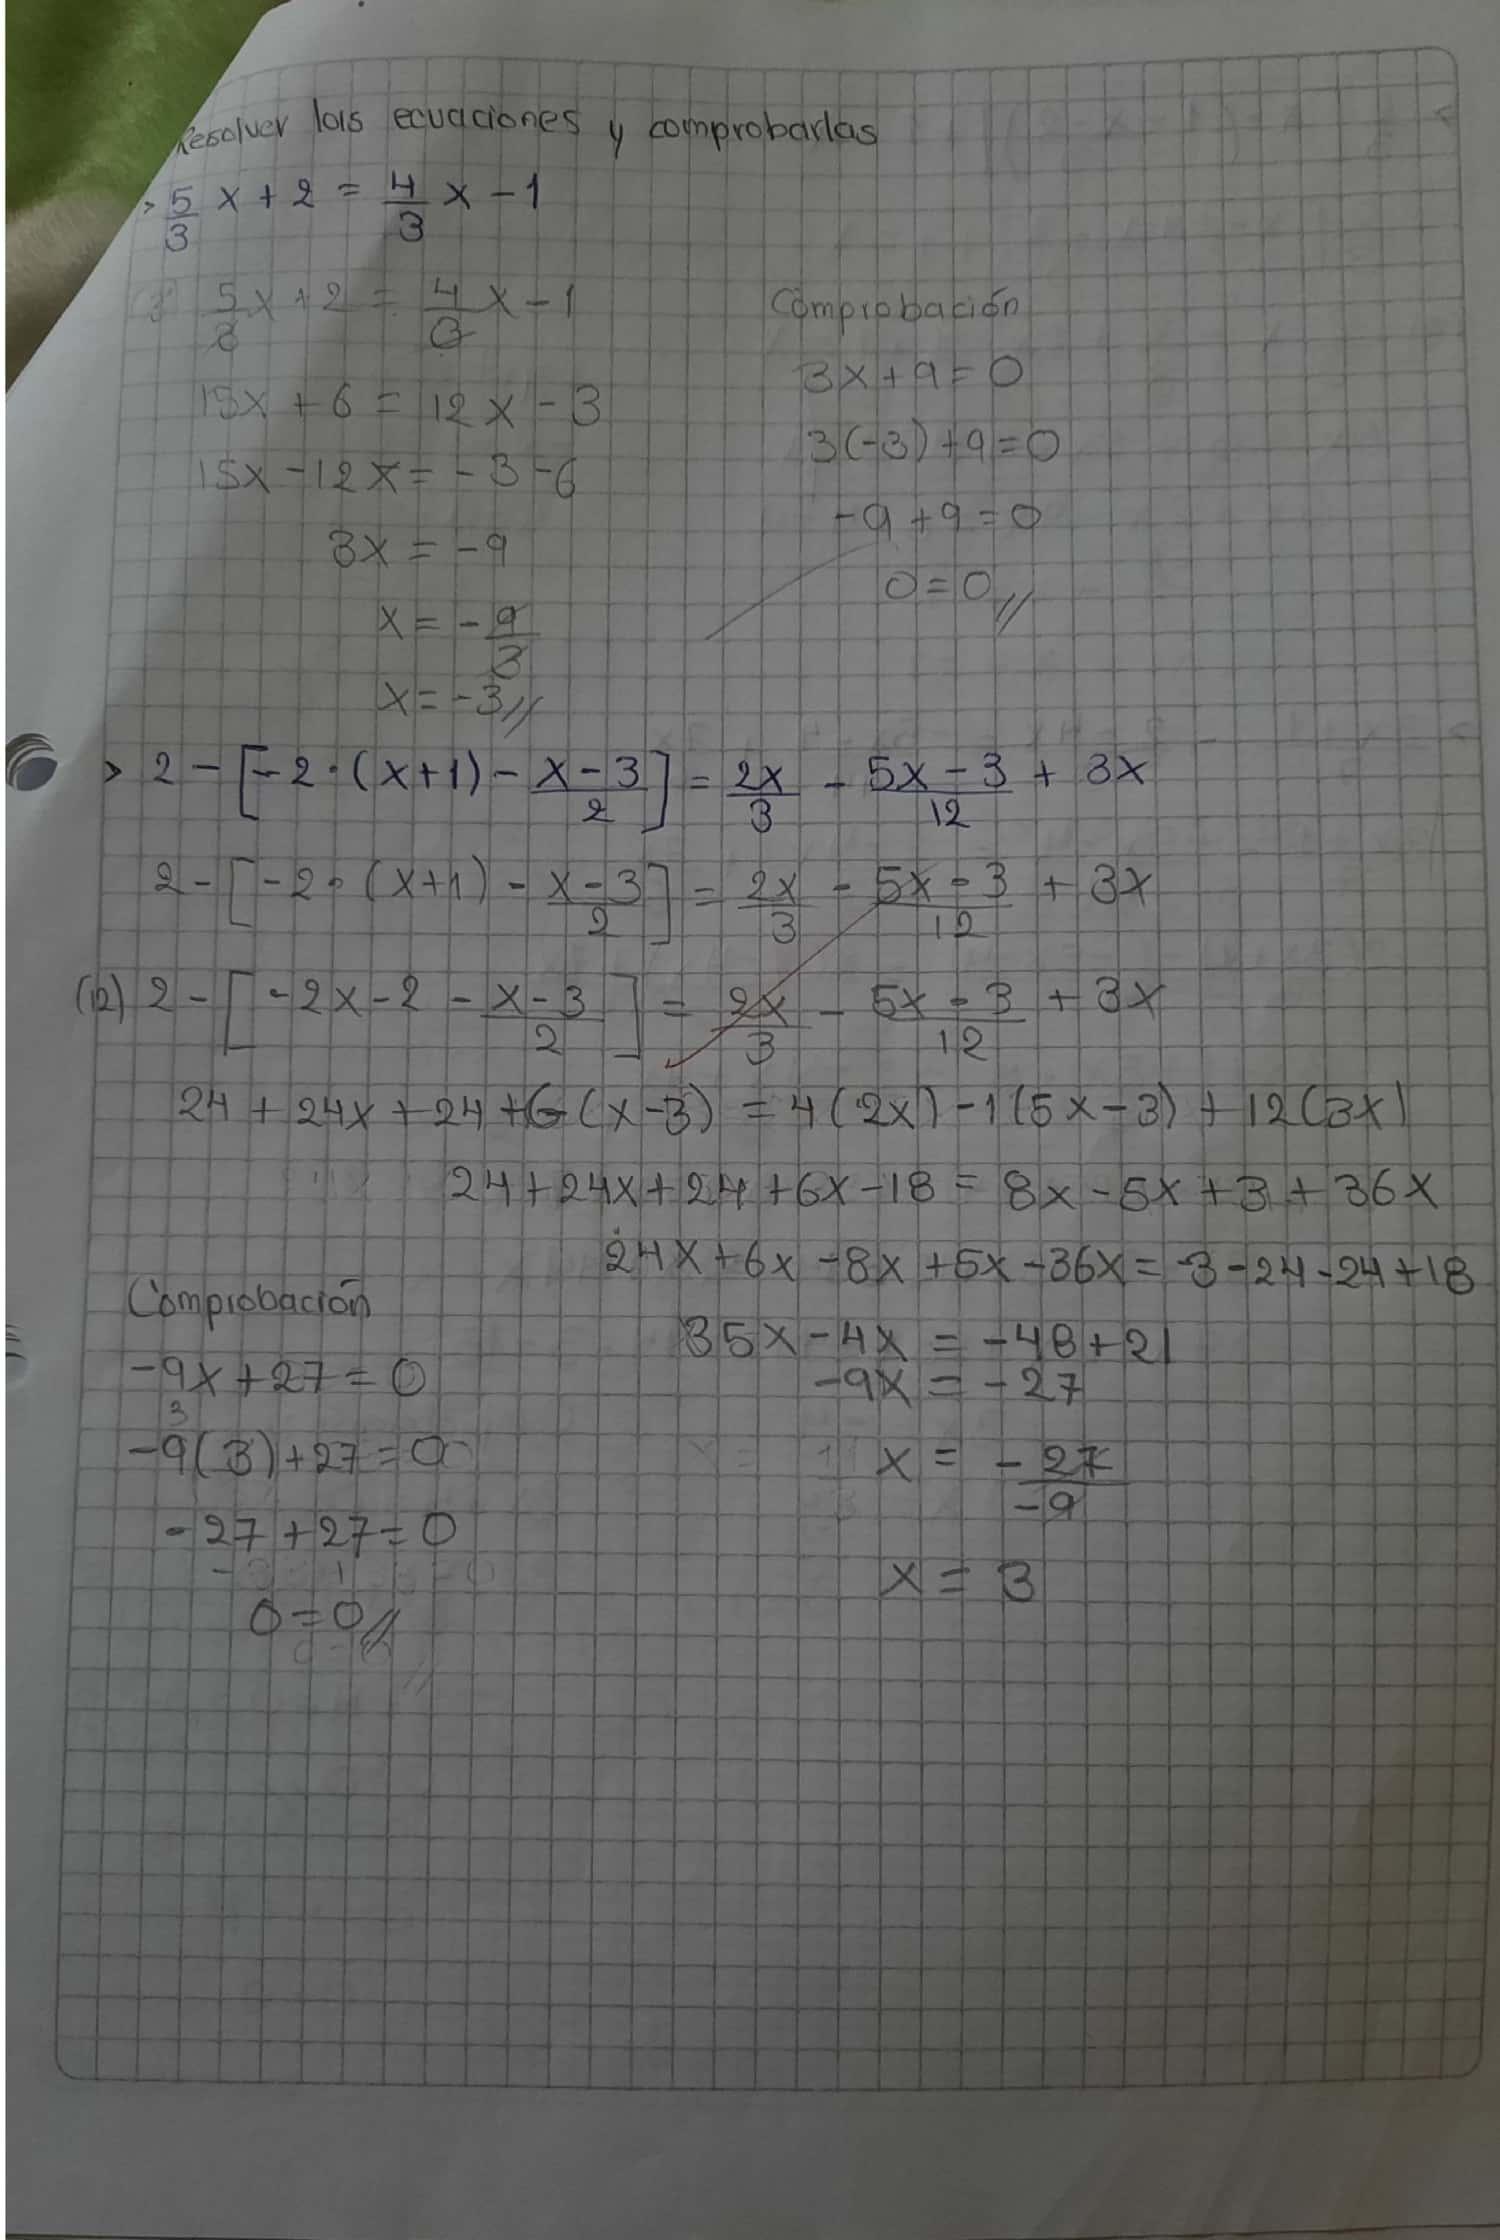 Resolver las ecuaciones y comprobarlas
> 5/3 x + 2 = 4/3 x - 1
(3) 5/3 x + 2 = 4/3 x - 1
15x + 6 = 12x - 3
15x - 12x = - 3 - 6
3x = - 9
x = - 9/3
x = - 3 //
Comprobación
3x + 9 = 0
3(-3) + 9 = 0
- 9 + 9 = 0
0 = 0 //
> 2 - [- 2 · (x+1) - (x - 3)/2] = 2x/3 - (5x - 3)/12 + 3x
2 - [- 2 · (x+1) - (x - 3)/2] = 2x/3 - (5x - 3)/12 + 3x
(12) 2 - [- 2x - 2 - (x - 3)/2] = 2x/3 - (5x - 3)/12 + 3x
24 + 24x + 24 + 6 (x - 3) = 4 (2x) - 1 (5x - 3) + 12 (3x)
24 + 24x + 24 + 6x - 18 = 8x - 5x + 3 + 36x
24x + 6x - 8x + 5x - 36x = 3 - 24 - 24 + 18
35x - 4x = - 48 + 21
- 9x = - 27
x = - 27/-9
x = 3
Comprobación
- 9x + 27 = 0
3
- 9(3) + 27 = 0
- 27 + 27 = 0
0 = 0 //